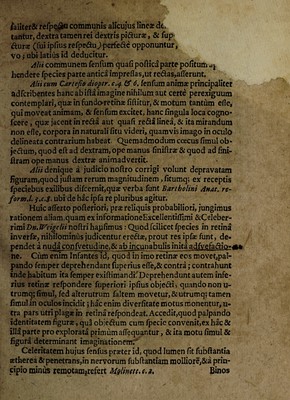 faliter& respectu communis alicujus lineæ de-
tantur, dextra tamen rei dextris picturæ, & sup
cturæ (sui ipsius respectu) perfectè opponuntur,
vo; ubi latiùs id deducitur.
Alii communem sensum quasi posticâ parte positum,
hendere species parte anticâ impressas, ut rectas, asserunt.
Alii cum Cartesio dioptr. c. 4 & 6. sensum animæ principaliter
adscribentes hanc ab istâ imagine nihilum aut certè perexiguum
contemplari, quæ in fundo retinæ sistitur, & motum tantùm esse,
qui moveat animam, & sensum excitet. hanc singula loca cogno-
scere, quæ jacent in rectâ aut quasi rectâ lineâ, & ita mirandum
non esse, corpora in naturali situ videri, quamvis imago in oculo
delineata contrarium habeat. Quemadmodum cœcus simul ob-
jectum, quod est ad dextram, ope manus sinistræ & quod ad sini-
stram ope manus dextræ animadvertit.
Alii denique à judicio nostro corrigi volunt depravatam
figuram, quod justam rerum magnitudinem, situmq; ex receptis
speciebus exilibus discernit, quæ verba sunt Bartholini Anat. re-
form. l. 3. c. 8. ubi de hâc ipsa re pluribus agitur.
Huic asserto posteriori, præ reliquis probabiliori, jungimus
rationem aliam. quam ex informatione Excellentissimi & Celeber-
rimi Dn. D Frigelii nostri hausimus: Quod scilicet species in retinâ
inversæ, nihilominùs judicentur erectæ, prout res ipsæ sunt, de-
pendet à nudâ consvetudine, & ab incunabulis initâ adsvefactio-
ne. Cùm enim Infantes id, quod in imo retinæ eos movet, pal-
pando semper deprehendant superius esse, & contrà; contrahunt
inde habitum ita semper existimandi. Deprehendunt autem infe-
rius retinæ respondere superiori ipsius objecti, quando non u-
trumq; simul, sed alterutrum saltem movetur, & utrumq; tamen
simul in oculos incidit; hâc enim diversitate motus monentur, u-
tra pars utri plagæ in retinâ respondeat. Accedit, quod palpando
identitatem figuræ, quâ objectum cum specie convenit, ex hâc &
illâ parte pro exploratâ primùm assequantur, & ita motu simul &
figurâ determinant imaginationem.
Celeritatem hujus sensus præter id, quod lumen sit substantia
ætherea & penetrans, in nervorum substantiam molliorē, & à prin-
cipio minùs remotam; refert Molinett. c. 2.
Binos